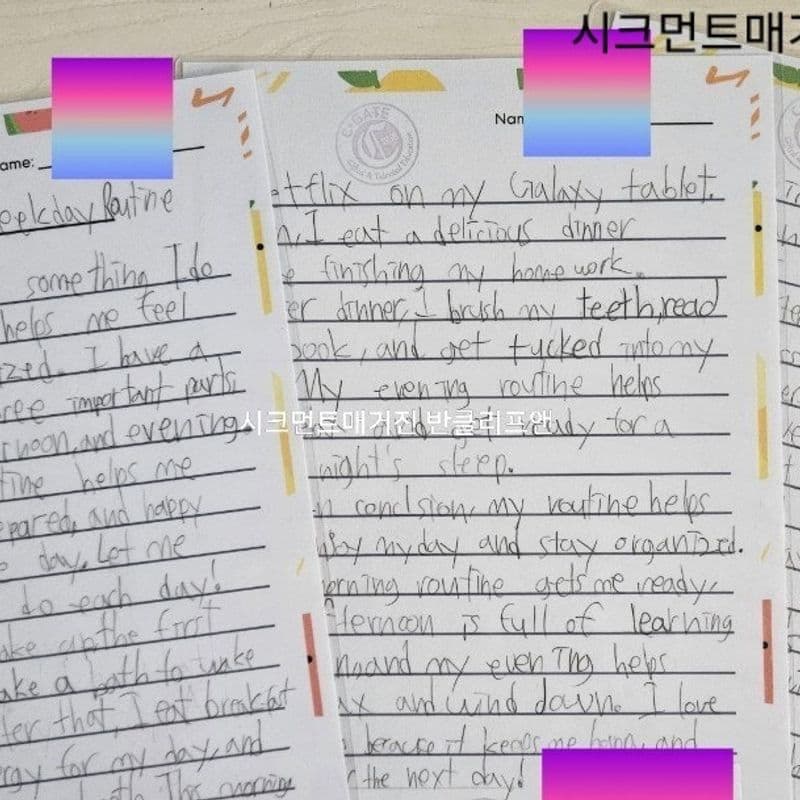 시크먼트매거
Name:
eekday Routine
something I do
helps me feel
ized. I have a
ree important parts
rnoon, and evening.
tine helps me
epared, and happy
day. Let me
do each day!
ake up the first
ake a bath to wake
ter that, I eat breakfast
rgy for my day, and
This morning
C·GATE
Gifted & Talented Education
Nam
etflix on my Galaxy tablet.
n, I eat a delicious dinner
e finishing my homework.
er dinner, I brush my teeth, read
book, and get tucked into my
My evening routine helps
시크먼트매거진 반클리프앤
ready for a
night's sleep.
n conclsion, my routine helps
my day and stay organized.
orning routine gets me ready,
fternoon is full of learning
n, and my evening helps
ax and wind down. I love
because it keeps me and
r the next day!